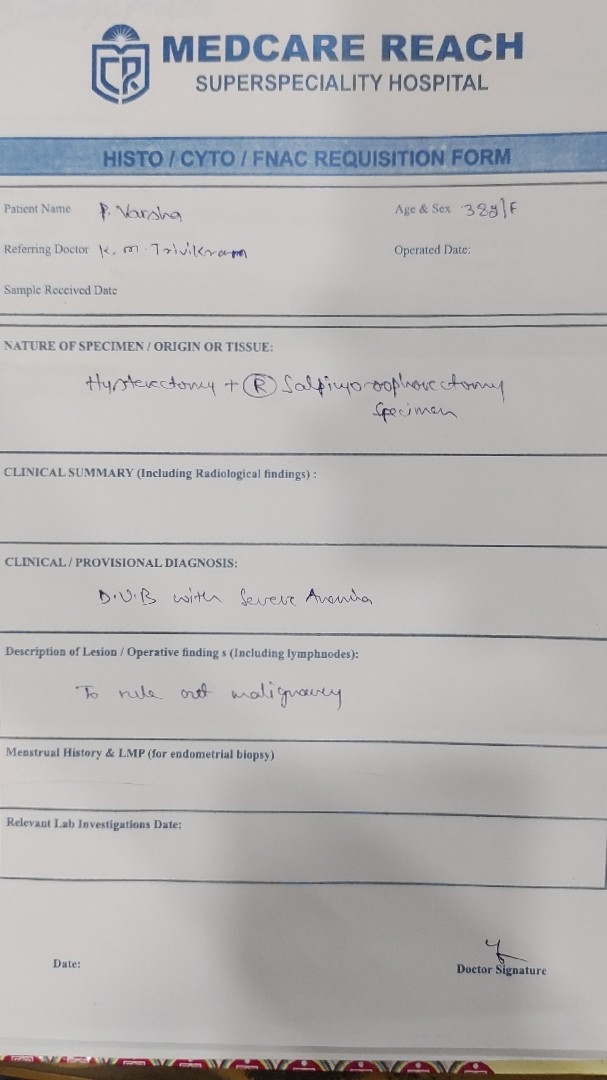 MEDCARE REACH
SUPERSPECIALITY HOSPITAL
HISTO / CYTO / FNAC REQUISITION FORM
Patient Name P. Varsha Age & Sex 38y/F
Referring Doctor K. M. Trivikram Operated Date:
Sample Received Date
NATURE OF SPECIMEN / ORIGIN OR TISSUE:
Hysterectomy + (R) Salpingo oophorectomy
Specimen
CLINICAL SUMMARY (Including Radiological findings) :
CLINICAL / PROVISIONAL DIAGNOSIS:
D.U.B with Severe Anemia
Description of Lesion / Operative finding s (Including lymphnodes):
To rule out malignancy
Menstrual History & LMP (for endometrial biopsy)
Relevant Lab Investigations Date:
Date:
Doctor Signature